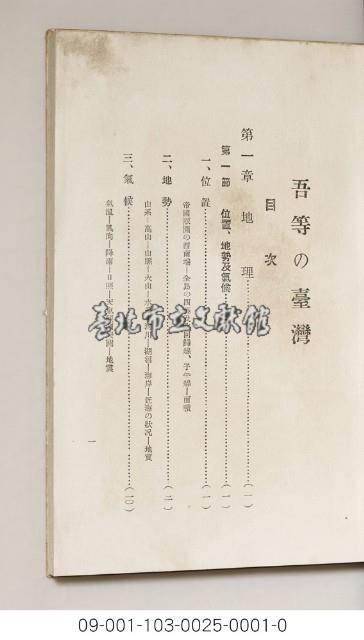 吾等の臺灣
目次
第一章 地理……(一)
第一節 位置、地勢及氣候……(一)
一、位置……(一)
帝國版圖の西南端—全島の四
子午線—面積
二、地勢……(二)
山系—高山—山脈—火山—
湖沼—海岸—近海の狀況—地質
三、氣候……(一〇)
氣溫—風向—降雨—日照—
地震
一
臺北市立文獻館
09-001-103-0025-0001-0